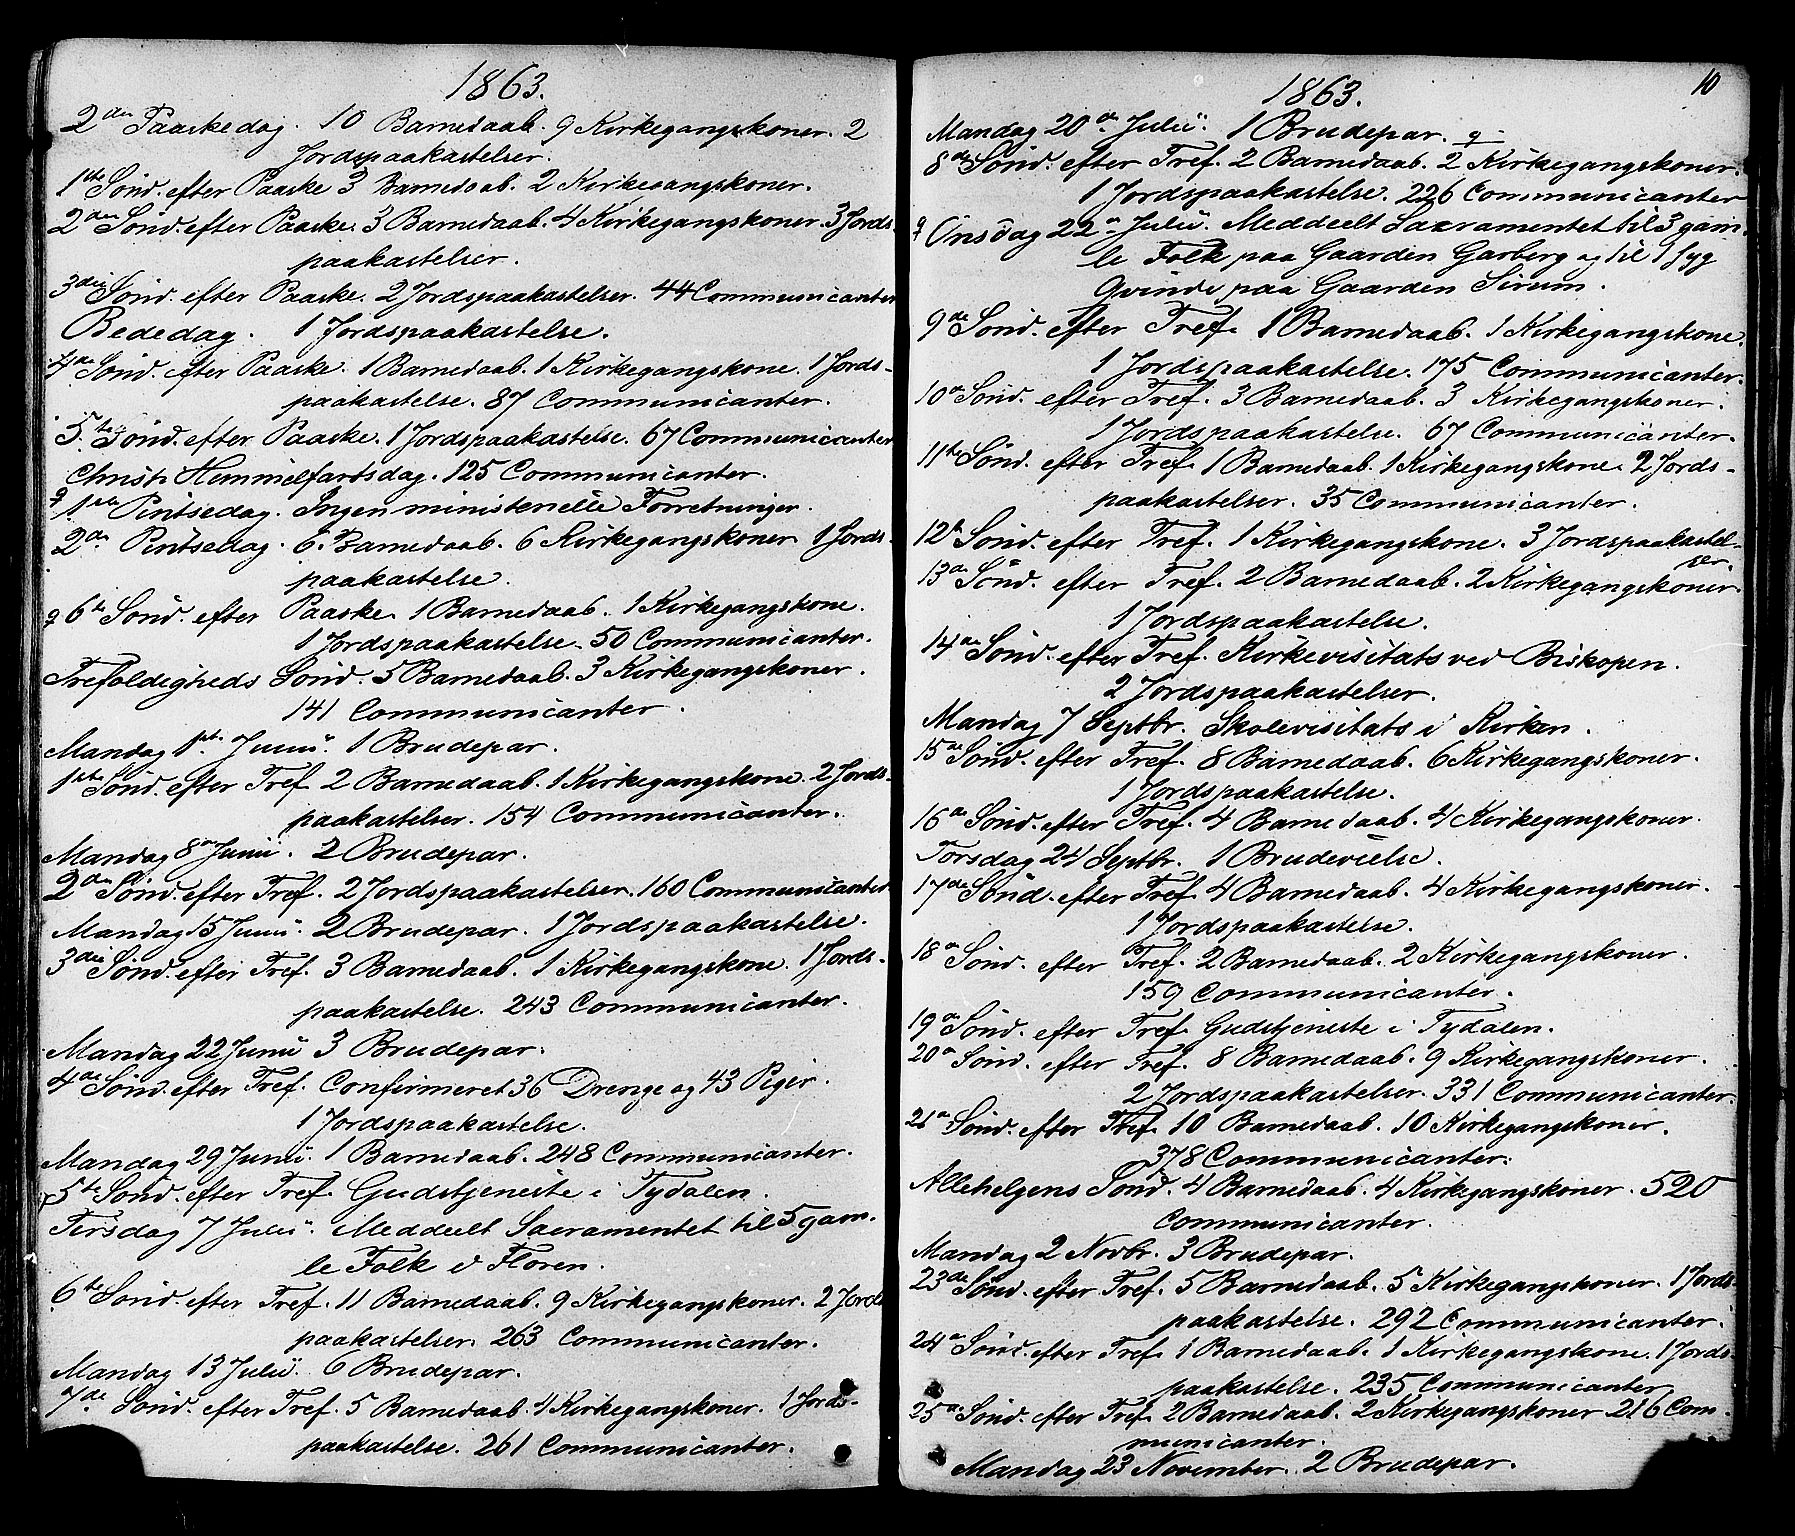 1863.
2den Paaskedag. 10 Barnedaab. 9 Kirkegangskoner. 2
Jordspaakastelser.
1ste Sönd. efter Paaske 3 Barnedaab. 2 Kirkegangskoner.
2den Sönd. efter Paaske. 3 Barnedaab. 4 Kirkegangskoner. 3 Jords-
paakastelser.
3die Sönd. efter Paaske. 2 Jordspaakastelser. 44 Communicanter
Bededag. 1 Jordspaakastelse.
4de Sönd. efter Paaske. 1 Barnedaab. 1 Kirkegangskone. 1 Jords-
paakastelse. 87 Communicanter.
5te Sönd. efter Paaske. 1 Jordspaakastelse. 67 Communicanter
Christi Himmelfartsdag. 125 Communicanter.
1ste Pintsedag. Ingen ministerielle Forretninger.
2den Pintsedag. 6 Barnedaab. 6 Kirkegangskoner 1 Jords-
paakastelse.
6te Sönd. efter Paaske. 1 Barnedaab. 1 Kirkegangskone.
1 Jordspaakastelse. 50 Communicanter.
Trefoldigheds Sönd. 5 Barnedaab. 3 Kirkegangskoner.
141 Communicanter.
Mandag 1ste Junii. 1 Brudepar.
1ste Sönd. efter Tref. 2 Barnedaab. 1 Kirkegangskone. 2 Jords-
paakastelser. 154 Communicanter.
Mandag 8de Junii. 2 Brudepar.
2den Sönd. efter Tref. 2 Jordspaakastelser. 160 Communicanter
Mandag 15 Junii. 2 Brudepar. 1 Jordspaakastelse.
3die Sönd. efter Tref. 3 Barnedaab. 1 Kirkegangskone. 1 Jords-
paakastelse. 243 Communicanter.
Mandag 22 Junii 3 Brudepar.
4de Sönd. efter Tref. Confirmeret 36 Drenge og 43 Piger.
1 Jordspaakastelse.
Mandag 29 Junii. 1 Barnedaab. 248 Communicanter.
5te Sönd. efter Tref. Gudstjeneste i Tydalen.
Tirsdag 7 Julii. Meddeelt Sacramentet til 5 gam-
le Folk i Floren.
6te Sönd. efter Tref. 11 Barnedaab. 9 Kirkegangskoner. 2 Jords
paakastelser. 263 Communicanter.
Mandag 13 Julii. 6 Brudepar.
7de Sönd. efter Tref. 5 Barnedaab. 4 Kirkegangskoner. 1 Jords-
paakastelse. 261 Communicanter.
10
1863.
Mandag 20de Julii. 1 Brudepar.
8de Sönd. efter Tref. 2 Barnedaab. 2 Kirkegangskoner.
1 Jordspaakastelse. 226 Communicanter
Onsdag 22de Julii. Meddeelt Sacramentet til 3 gam-
le Folk paa Gaarden Garberg og til 1 syg
Qvinde paa Gaarden Sirum.
9de Sönd. efter Tref. 1 Barnedaab. 1 Kirkegangskone.
1 Jordspaakastelse. 175 Communicanter.
10de Sönd. efter Tref. 3 Barnedaab. 3 Kirkegangskoner.
1 Jordspaakastelse. 67 Communicanter.
11te Sönd. efter Tref. 1 Barnedaab. 1 Kirkegangskone. 2 Jords-
paakastelser. 35 Communicanter.
12te Sönd. efter Tref. 1 Kirkegangskone. 3 Jordspaakastel-
ser.
13de Sönd. efter Tref. 2 Barnedaab. 2 Kirkegangskoner.
1 Jordspaakastelse.
14de Sönd. efter Tref. Kirkevisitats ved Biskopen.
2 Jordspaakastelser.
Mandag 7 Septbr. Skolevisitats i Kirken.
15de Sönd. efter Tref. 8 Barnedaab. 6 Kirkegangskoner.
1 Jordspaakastelse.
16de Sönd. efter Tref. 4 Barnedaab. 4 Kirkegangskoner.
Torsdag 24 Septbr. 1 Brudevielse.
17de Sönd. efter Tref. 4 Barnedaab. 4 Kirkegangskoner.
1 Jordspaakastelse.
18de Sönd. efter Tref. 2 Barnedaab. 2 Kirkegangskoner.
159 Communicanter.
19de Sönd. efter Tref. Gudstjeneste i Tydalen.
20de Sönd. efter Tref. 8 Barnedaab. 9 Kirkegangskoner.
2 Jordspaakastelser. 331 Communicanter.
21de Sönd. efter Tref. 10 Barnedaab. 10 Kirkegangskoner.
378 Communicanter.
Allehelgens Sönd. 4 Barnedaab. 4 Kirkegangskoner. 520
Communicanter.
Mandag 2 Novbr. 3 Brudepar.
23de Sönd. efter Tref. 5 Barnedaab. 5 Kirkegangskoner. 1 Jords-
paakastelse. 292 Communicanter.
24de Sönd. efter Tref. 1 Barnedaab. 1 Kirkegangskone. 1 Jords-
paakastelse. 235 Communicanter
25de Sönd. efter Tref. 2 Barnedaab. 2 Kirkegangskoner 216 Com-
municanter.
Mandag 23 November. 2 Brudepar.